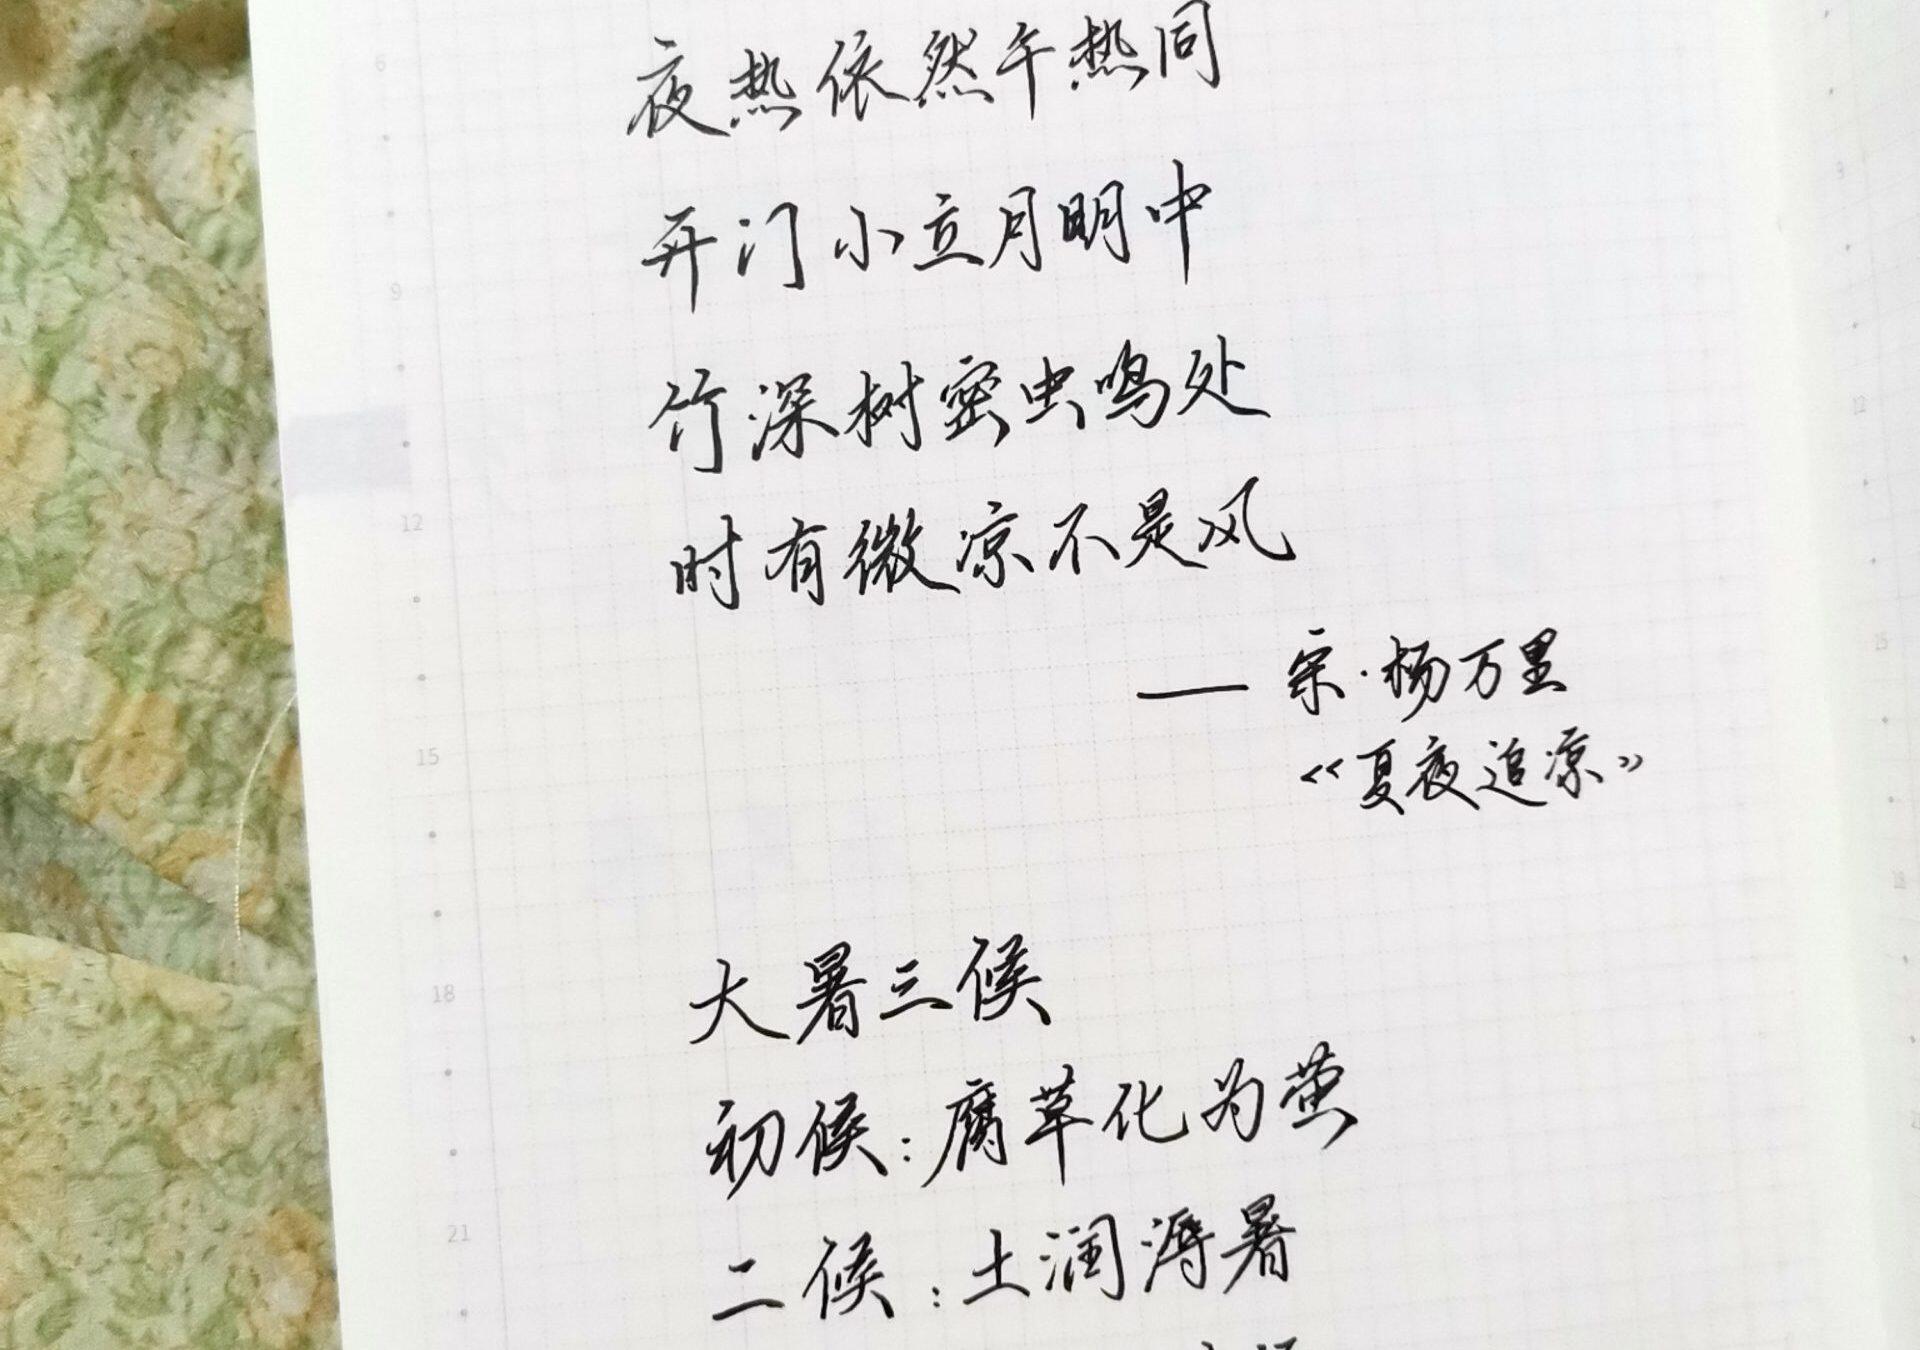 夜热依然午热同
开门小立月明中
竹深树密虫鸣处
时有微凉不是风
—— 宗·杨万里
《夏夜追凉》
大暑三候
初候:腐草化为萤
二候:土润溽暑
6
9
12
15
18
21